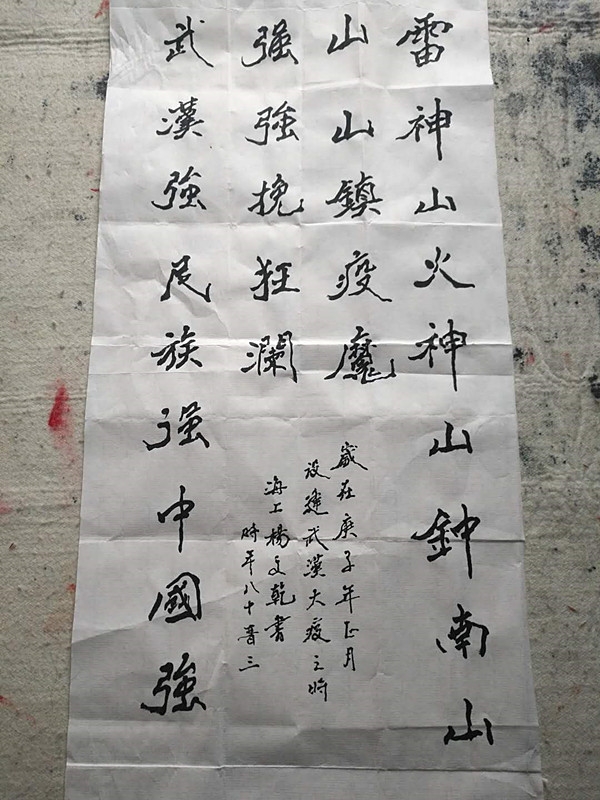 雷神山火神山鈡南山
山山鎮疫魔
武漢強民族强中國強
强強挽狂瀾
歲在庚子年正月
武漢大疫之時
海上楊文乾書
時年八十晋三